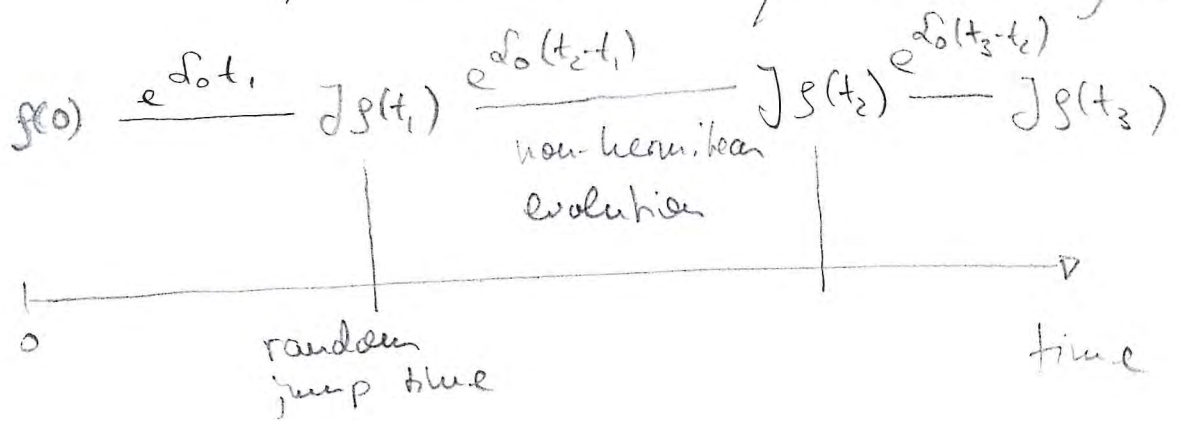 ρ(0) e^{ℒ₀t₁} Jρ(t₁) e^{ℒ₀(t₂-t₁)} Jρ(t₂) e^{ℒ₀(t₃-t₂)} Jρ(t₃)
non-hermitean
evolution
0 random time
jump time